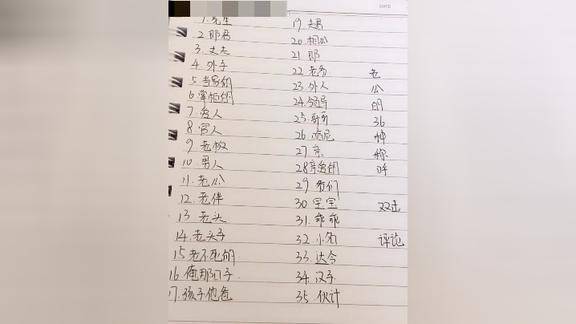 1. 先生
2 郎君
3. 丈夫
4. 外子
5 当家的
6 掌柜的
7 爱人
8 官人
9 老板
10 男人
11. 老公
12. 老伴
13. 老头
14. 老头子
15 老不死的
16. 俺那口子
17. 孩子他爸
19. 夫君
20. 相公
21 郎
22 老爷
23. 外人
24. 领导
26. 哈尼
27 亲
30 宝宝
31. 乖乖
32. 小名
33. 达令
34. 汉子
35. 伙计
老
公
的
36
种
称
呼
双击
评论